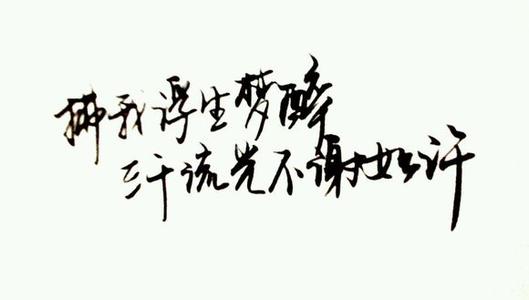 拂我浮生梦醉
三千流光不谢如许